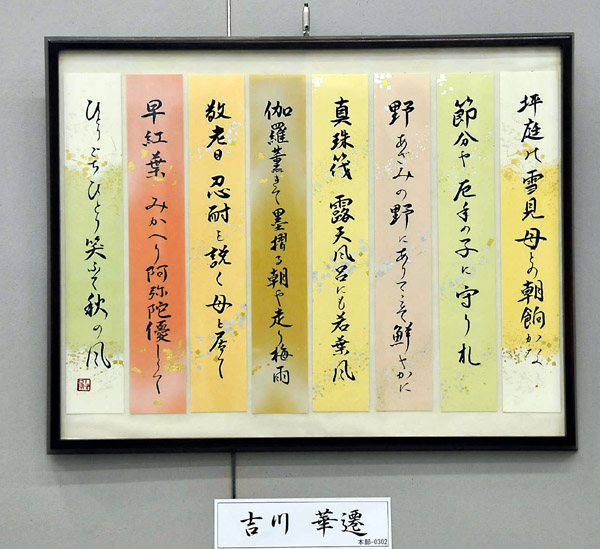 坪庭の雪見母との朝餉かな
節分や厄年の子に守り札
野あざみの野にありてこそ鮮やかに
真珠筏 露天風呂にも若葉風
伽羅薫きて墨摺る朝や走り梅雨
敬老日 忍耐を説く母と居て
早紅葉 みかへり阿弥陀優しくて
ひとりごちひとり笑ふて秋の風
吉川 華遷
本部-0302